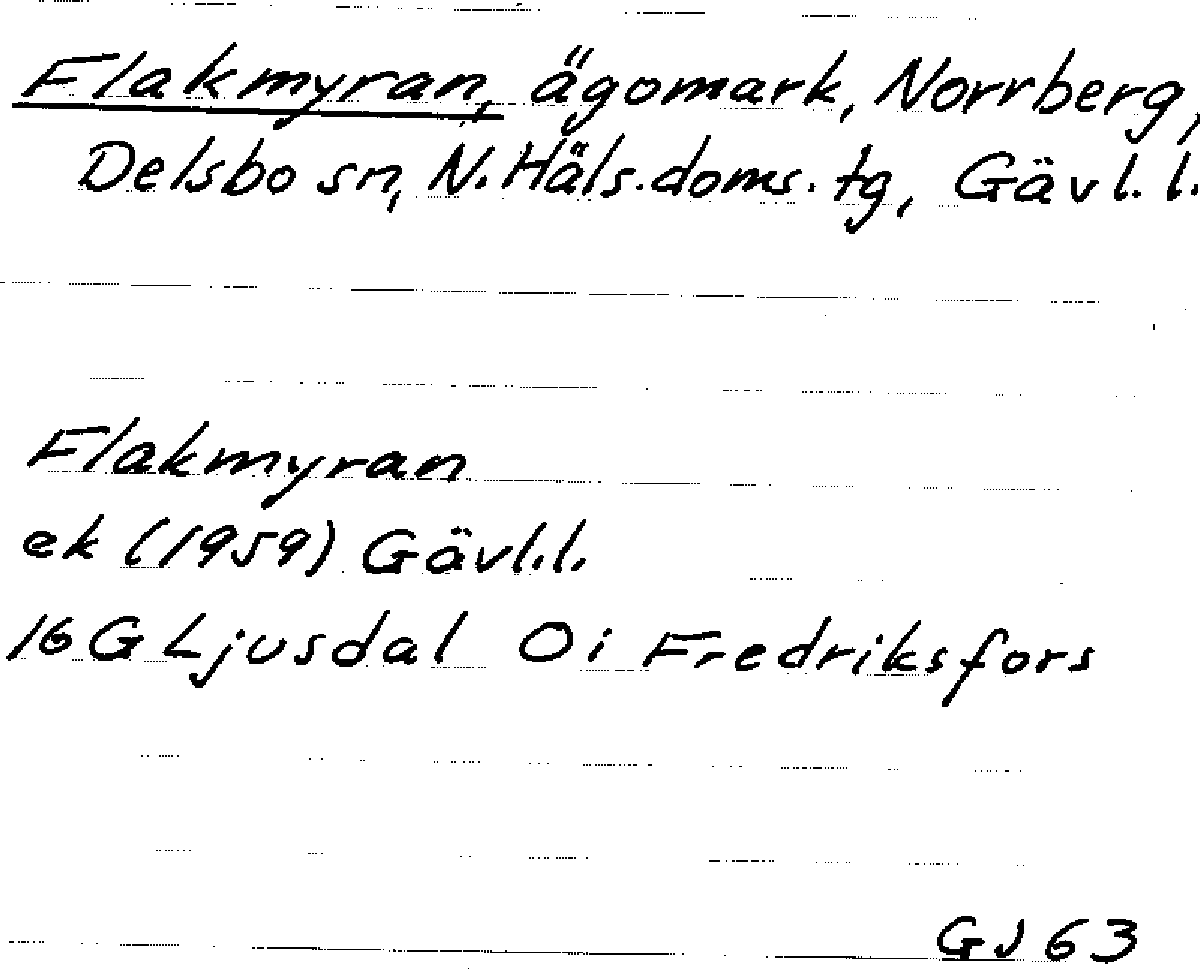 Flakmyran, ägomark, Norrberg,
Delsbo sn, N. Häls. doms. tg, Gävl. l.
Flakmyran
ek (1959) Gävl.l.
16 G Ljusdal 0 i Fredriksfors
GJ 63